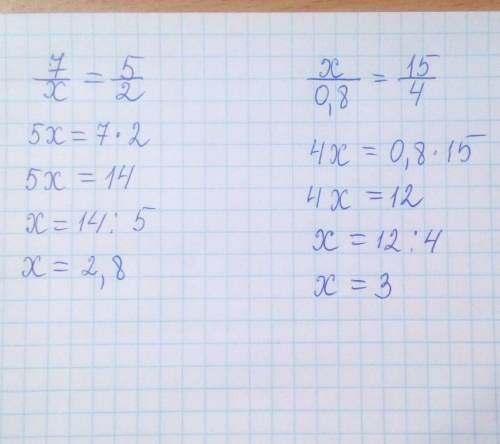 7/x = 5/2
5x = 7 · 2
5x = 14
x = 14 : 5
x = 2,8
x/0,8 = 15/4
4x = 0,8 · 15
4x = 12
x = 12 : 4
x = 3